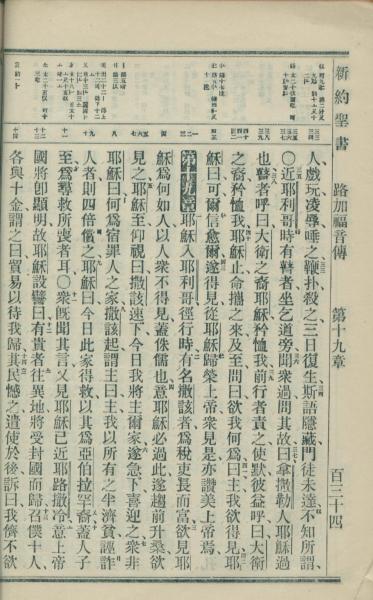 新約聖書 路加福音傳 第十九章 百三十四
人戲玩凌辱唾之鞭扑殺之三日復生斯語隱藏門徒未達不知所謂
○近耶利哥時有瞽者坐乞道旁聞衆過問其故曰拿撒勒人耶穌過
也瞽者呼曰大衛之裔耶穌矜恤我前行者責之使默彼益呼曰大衛
之裔矜恤我耶穌止命攜之來及至問曰欲我何爲曰主我欲得見耶
穌曰可爾信愈爾遂得見從耶穌歸榮上帝衆見是亦讚美上帝焉
第十九章耶穌入耶利哥徑行時有名撒該者爲稅吏長而富欲見耶
穌爲何如人以人衆不得見蓋侏儒也意耶穌必過此遂趨前升桑欲
見之耶穌至仰視曰撒該速下今日我將主爾家遂急下喜迎之衆非
耶穌曰何爲宿罪人之家撒該起謂主曰主我以所有之半濟貧誣詐
人者則四倍償之耶穌曰今日此家得救以其爲亞伯拉罕裔蓋人子
至爲尋救所喪者耳○衆旣聞其言又見耶穌已近耶路撒冷意上帝
國將卽顯明故耶穌設譬曰有貴者往異地將受封國而歸召僕十人
各與十金謂之曰貿易以待我歸其民憾之遣使於後訴曰我儕不欲